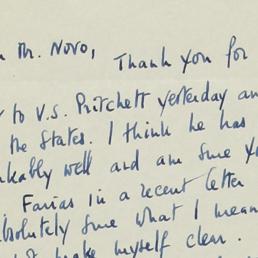 Mr. Novo,
Thank you for
to V.S. Pritchett yesterday an
the States. I think he has
kably well and am sure y
Farias in a recent letter
bsolutely sure what I mean
make myself clear.